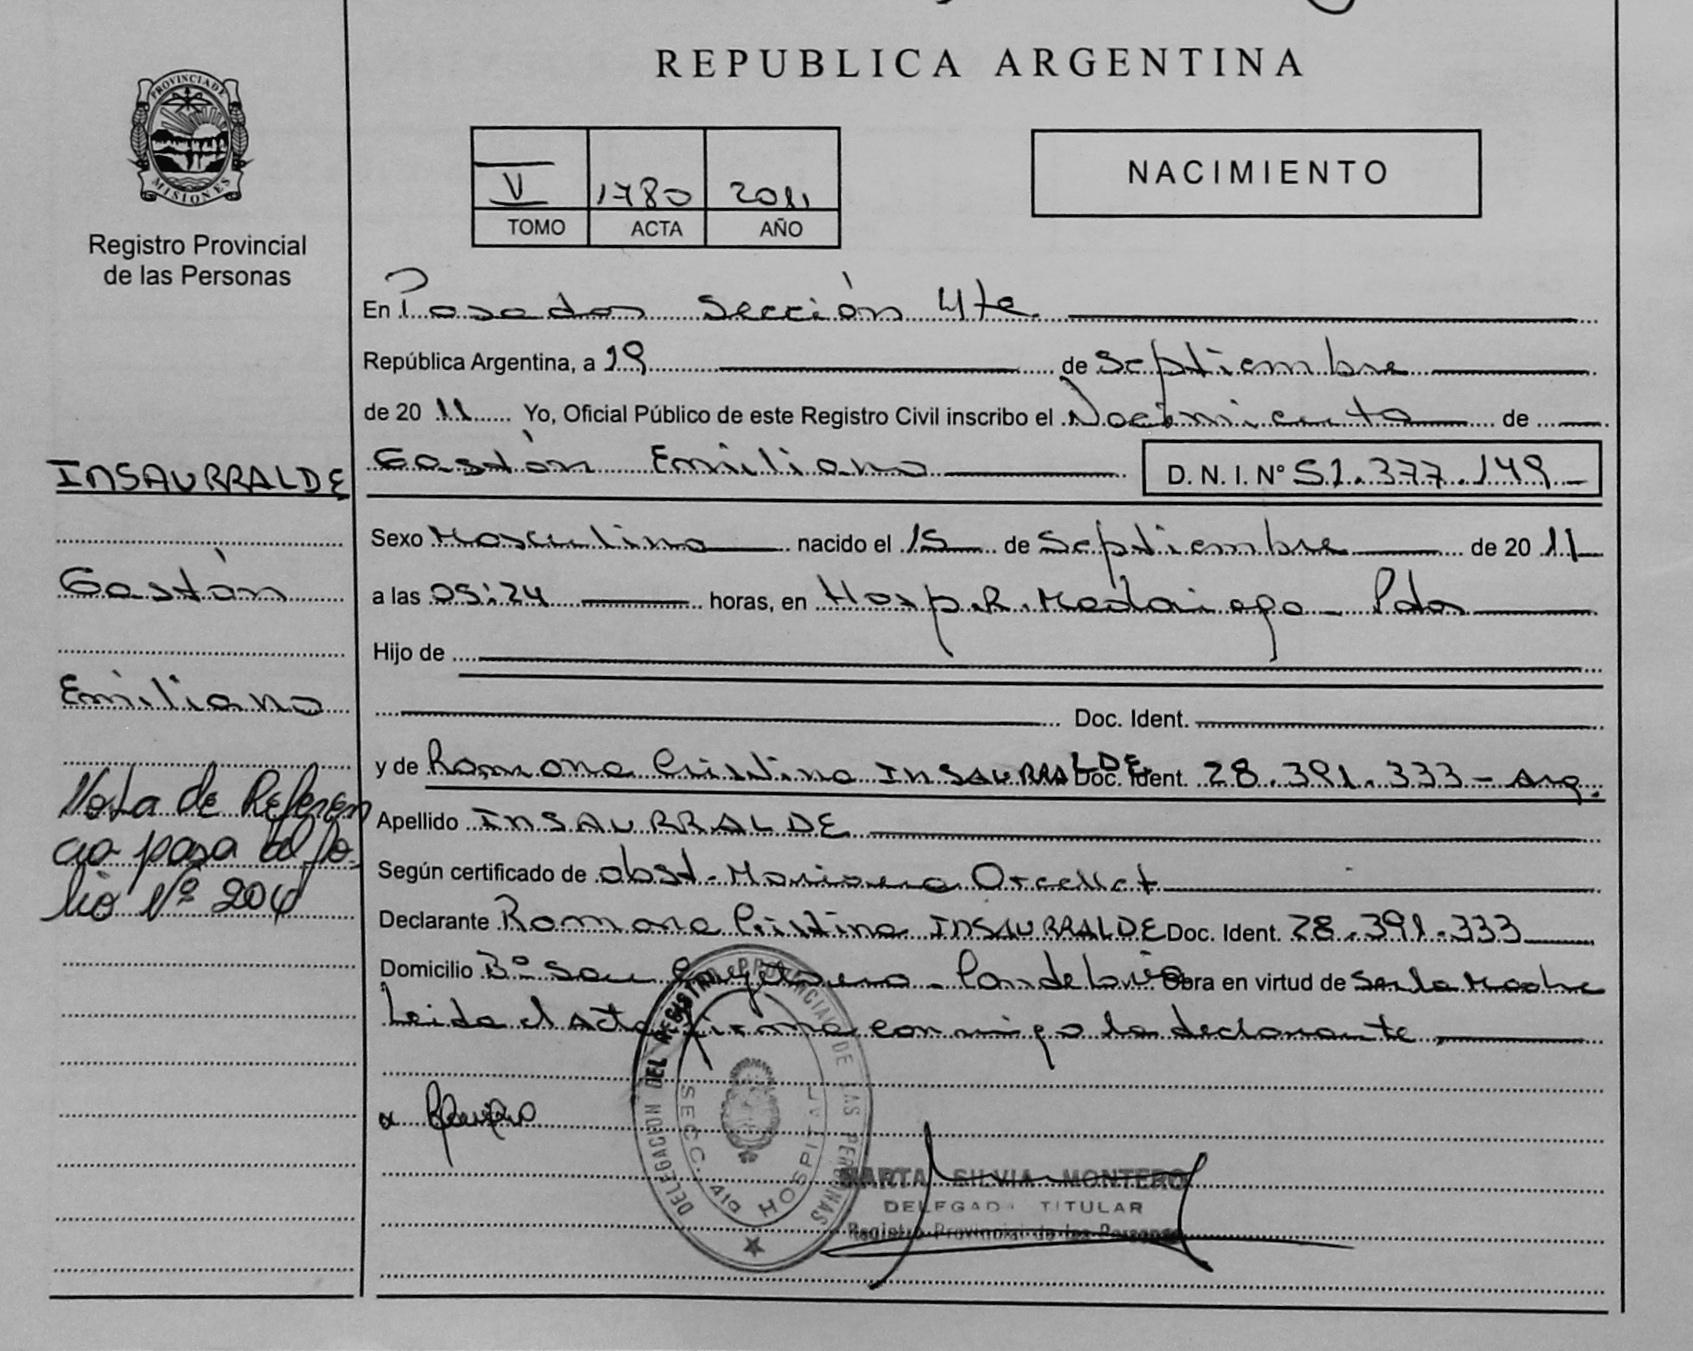 REPUBLICA ARGENTINA
PROVINCIA DE
MISIONES
Registro Provincial
de las Personas
V 1780 2011
TOMO ACTA AÑO
NACIMIENTO
En Posadas Sección 4ta
República Argentina, a 19 de Septiembre
de 2011 Yo, Oficial Público de este Registro Civil inscribo el Nacimiento de
Gastón Emiliano D. N. I. Nº 51.377.149
Sexo Masculino nacido el 15 de Septiembre de 2011
a las 05:24 horas, en Hosp. R. Madariaga - Pdas
Hijo de
Doc. Ident.
y de Ramona Cristina INSAURRALDE Doc. Ident. 28.391.333 - Arg.
Apellido INSAURRALDE
Según certificado de obst. Orcellet
Declarante Ramona Cristina INSAURRALDE Doc. Ident. 28.391.333
Domicilio Bº San - Candelaria Obra en virtud de Ser la Madre
Leida el Acta firma conmigo la declarante
INSAURRALDE
Gastón
Emiliano
Nota de Referen
cia pasa al fo-
lio Nº 204
DELEGACION DEL REGISTRO PROVINCIAL DE LAS PERSONAS
SECC. 4ta HOSPITAL
MARTA SILVIA MONTERO
DELEGADA TITULAR
Registro Provincial de las Personas